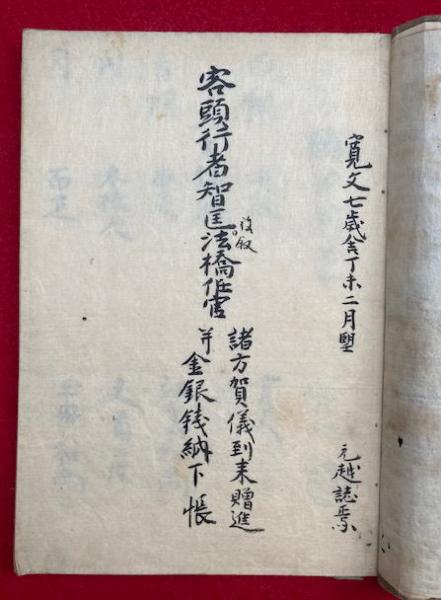 寛文七歳舎丁未二月
元越誌焉
客頭行者智匡法橋任官
後叙
諸方賀儀到来贈進
并金銀銭納下帳